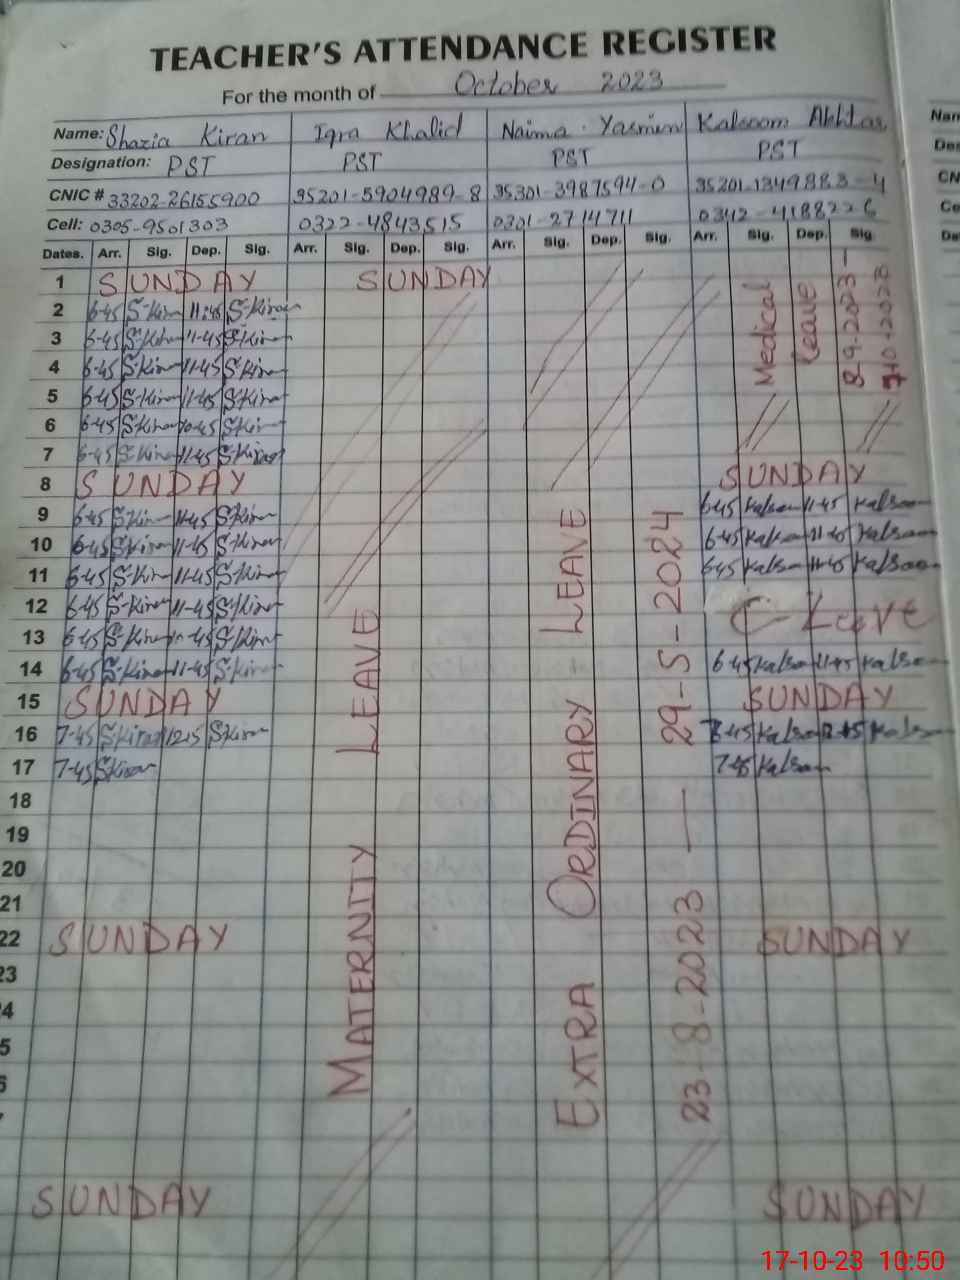 TEACHER'S ATTENDANCE REGISTER
For the month of October 2023
Name: Shazia Kiran Iqra Khalid Naima Yasmin Kalsoom Akhtar Nam
Designation: PST PST PST PST Des
CNIC # 33202-26155900 35201-5904989-8 35301-3987594-0 35201-1349883-4 CN
Cell: 0305-9501303 0322-4843515 0301-2714711 0342-4188226 Ce
Dates. Arr. Sig. Dep. Sig. Arr. Sig. Dep. Sig. Arr. Sig. Dep. Sig. Arr. Sig. Dep. Sig Da
1 SUNDAY SUNDAY
2 6-45 S-Kiran 11-45 S-Kiran
3 6-45 S-Kiran 11-45 S-Kiran
4 6-45 S-Kiran 11-45 S-Kiran
5 6-45 S-Kiran 11-45 S-Kiran
6 6-45 S-Kiran 10-45 S-Kiran
7 6-45 S-Kiran 11-45 S-Kiran
Medical Leave 8-9-2023 - 7-10-2023
8 SUNDAY SUNDAY
9 6-45 S-Kiran 11-45 S-Kiran 6-45 Kalsoom 11-45 Kalsoom
10 6-45 S-Kiran 11-45 S-Kiran 6-45 Kalsoom 11-45 Kalsoom
11 6-45 S-Kiran 11-45 S-Kiran 6-45 Kalsoom 11-45 Kalsoom
12 6-45 S-Kiran 11-45 S-Kiran C- Leave
13 6-45 S-Kiran 11-45 S-Kiran
14 6-45 S-Kiran 11-45 S-Kiran 6-45 Kalsoom 11-45 Kalsoom
15 SUNDAY SUNDAY
16 7-45 S Kiran 12-15 S Kiran Kalsoom Kalsoom
17 7-45 S Kiran 7-45 Kalsoom
18
19
20
21
22 SUNDAY SUNDAY
23
4
5
SUNDAY SUNDAY
MATERNITY LEAVE
EXTRA ORDINARY LEAVE
23-8-2023 — 29-5-2024
17-10-23 10:50